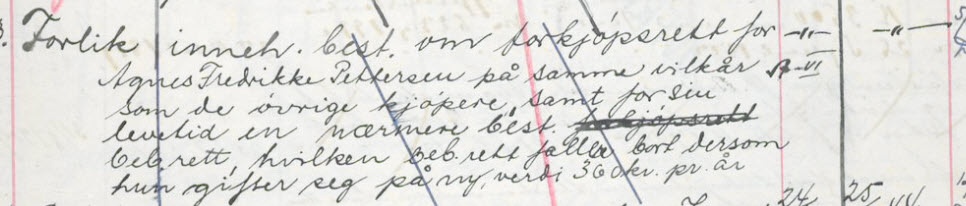 Forlik inneh. best. om forkjöpsrett for -„- -„-
Agnes Fredrikke Pettersen på samme vilkår
som de övrige kjöpere, samt for sin
levetid en nærmere best. forkjöpsrett
beb.rett, hvilken beb.rett faller bort dersom
hun gifter seg på ny, verdi 360 kr. pr. år
24 25